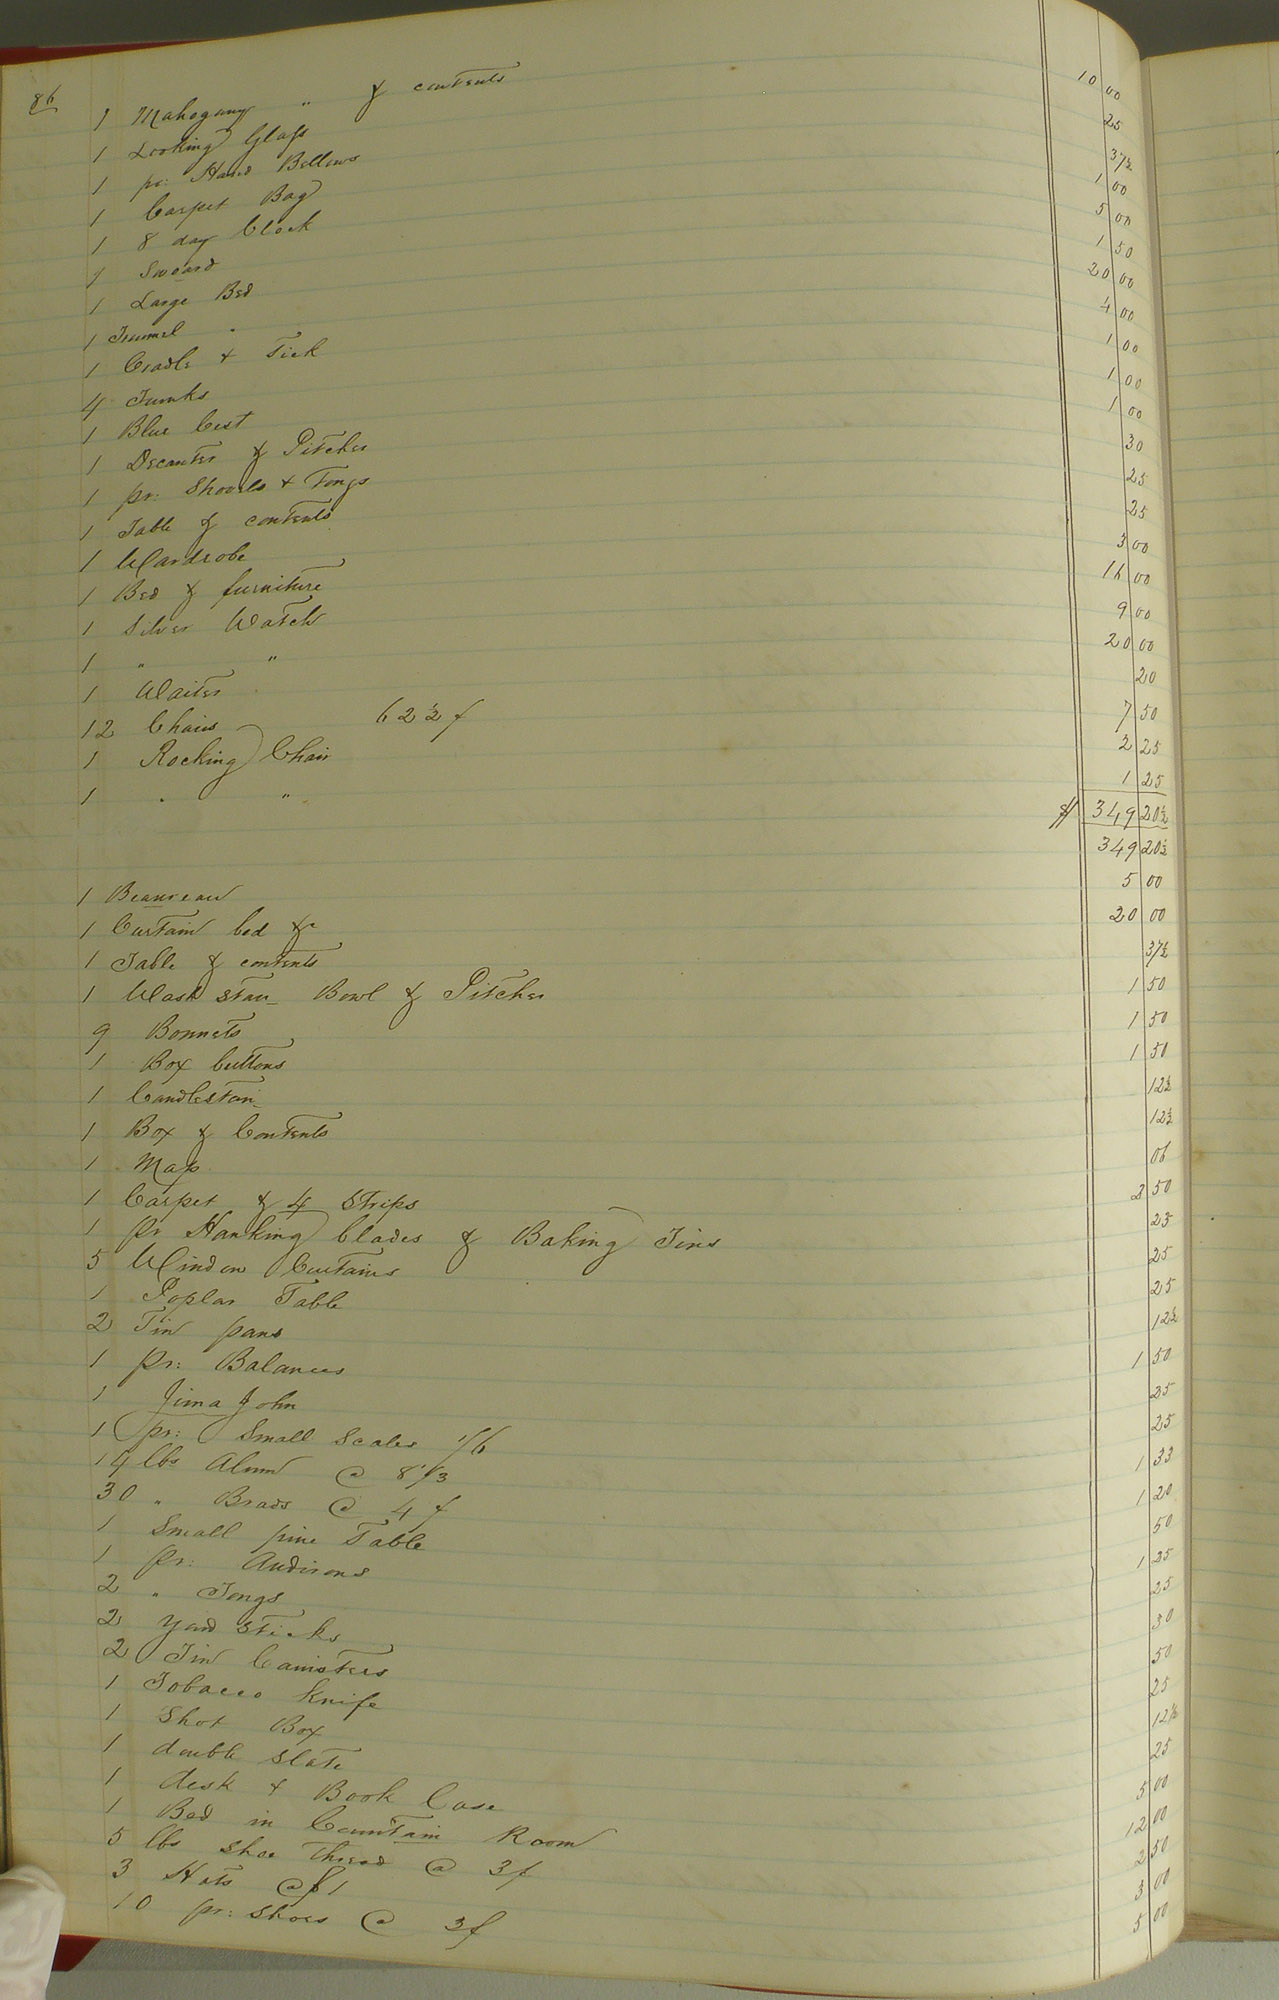 86
1 Mahogany " & contents 10 00
1 Looking Glass 25
1 pr: Hand Bellows 37½
1 Carpet Bag 1 00
1 8 day Clock 5 00
1 Sword 1 50
1 Large Bed 20 00
1 Trunnel " 4 00
1 Cradle & Tick 1 00
4 Trunks 1 00
1 Blue Cest 1 00
1 Decanter & Pitcher 30
1 pr: Shovels & Tongs 25
1 Table & contents 25
1 Wardrobe 3 00
1 Bed & furniture 16 00
1 Silver Watch 9 00
1 " " 20 00
1 Waiter 20
12 Chairs 62½ 7 50
1 Rocking Chair 2 25
1 " " 1 25
$ 349 20½
349 20½
1 Beaureau 5 00
1 Curtain bed &c 20 00
1 Table & contents 37½
1 Wash stan_ Bowl & Pitcher 1 50
9 Bonnets 1 50
1 Box buttons 1 50
1 Candlestan_ 12½
1 Box & Contents 12½
1 Map 06
1 Carpet & 4 Strips 2 50
1 pr Hanking blades & Baking Tins 25
5 Window Curtains 25
1 Poplar Table 25
2 Tin pans 12½
1 pr: Balances 1 50
1 Jima John 25
1 pr: Small Scales 1/6 25
14 lbs Alum @ 8 1/3 1 33
30 " Brads @ 4 1 20
1 Small pine Table 50
1 pr: Andirons 1 25
2 " Tongs 25
2 Yard Sticks 30
2 Tin Canisters 50
1 Tobacco Knife 25
1 Shot Box 12½
1 double slate 25
1 desk & Book Case 5 00
1 Bed in Countain Room 12 00
5 lbs shoe Thread @ 3/ 2 50
3 Hats @ $1 3 00
10 pr: Shoes @ 3/ 5 00